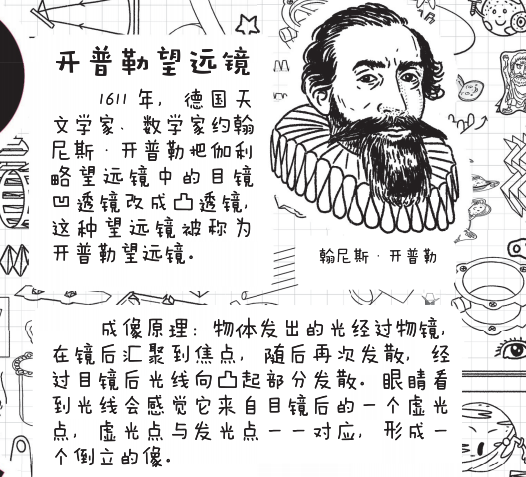 开普勒望远镜
1611年，德国天
文学家、数学家约翰
尼斯·开普勒把伽利
略望远镜中的目镜
凹透镜改成凸透镜，
这种望远镜被称为
开普勒望远镜。
翰尼斯·开普勒
成像原理：物体发出的光经过物镜，
在镜后汇聚到焦点，随后再次发散，经
过目镜后光线向凸起部分发散。眼睛看
到光线会感觉它来自目镜后的一个虚光
点，虚光点与发光点一一对应，形成一
个倒立的像。